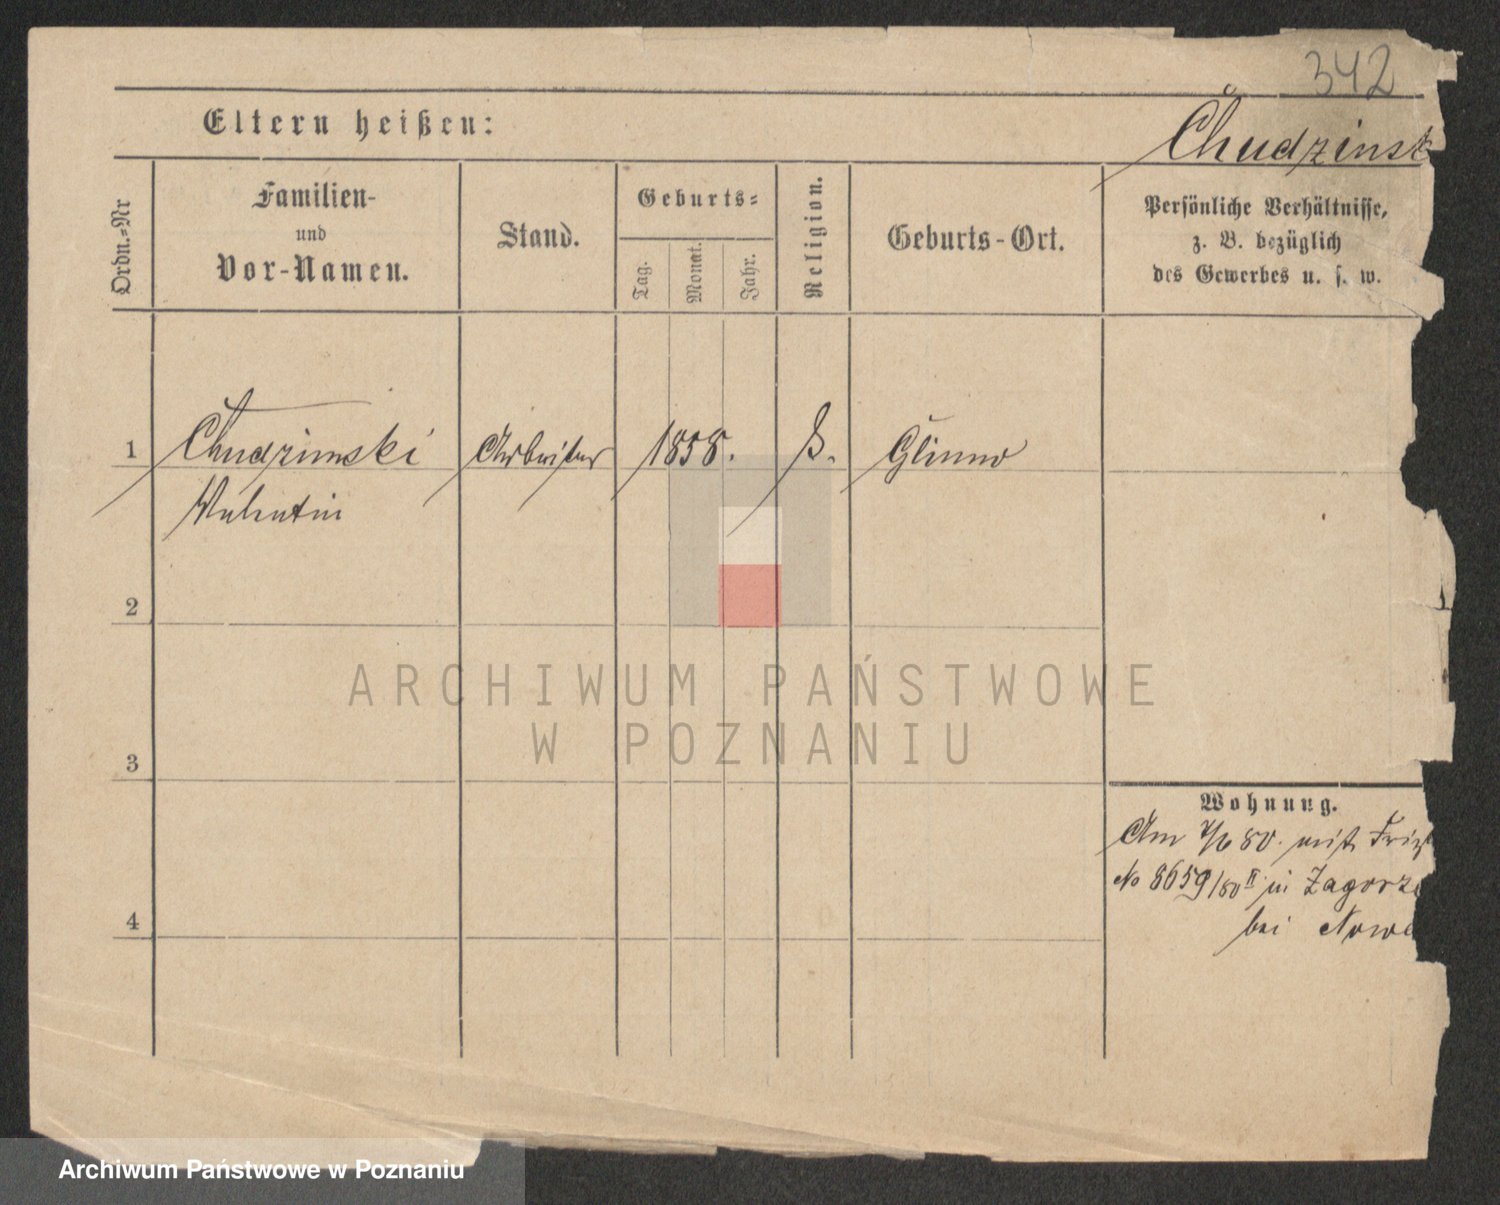 342
Eltern heißen:
Chudzinsk
Ordn.=Nr
Familien-
und
Vor-Namen.
Stand.
Geburts=
Tag.
Monat.
Jahr.
Religion.
Geburts-Ort.
Persönliche Verhältnisse,
z. B. bezüglich
des Gewerbes u. s. w.
1
Chudzinski
Arbeiter
1858.
Glinno
Valentin
2
3
4
Wohnung.
Am 80. mit
No 8659/80 II in Zagorze
bei Nowa
ARCHIWUM PAŃSTWOWE
W POZNANIU
Archiwum Państwowe w Poznaniu